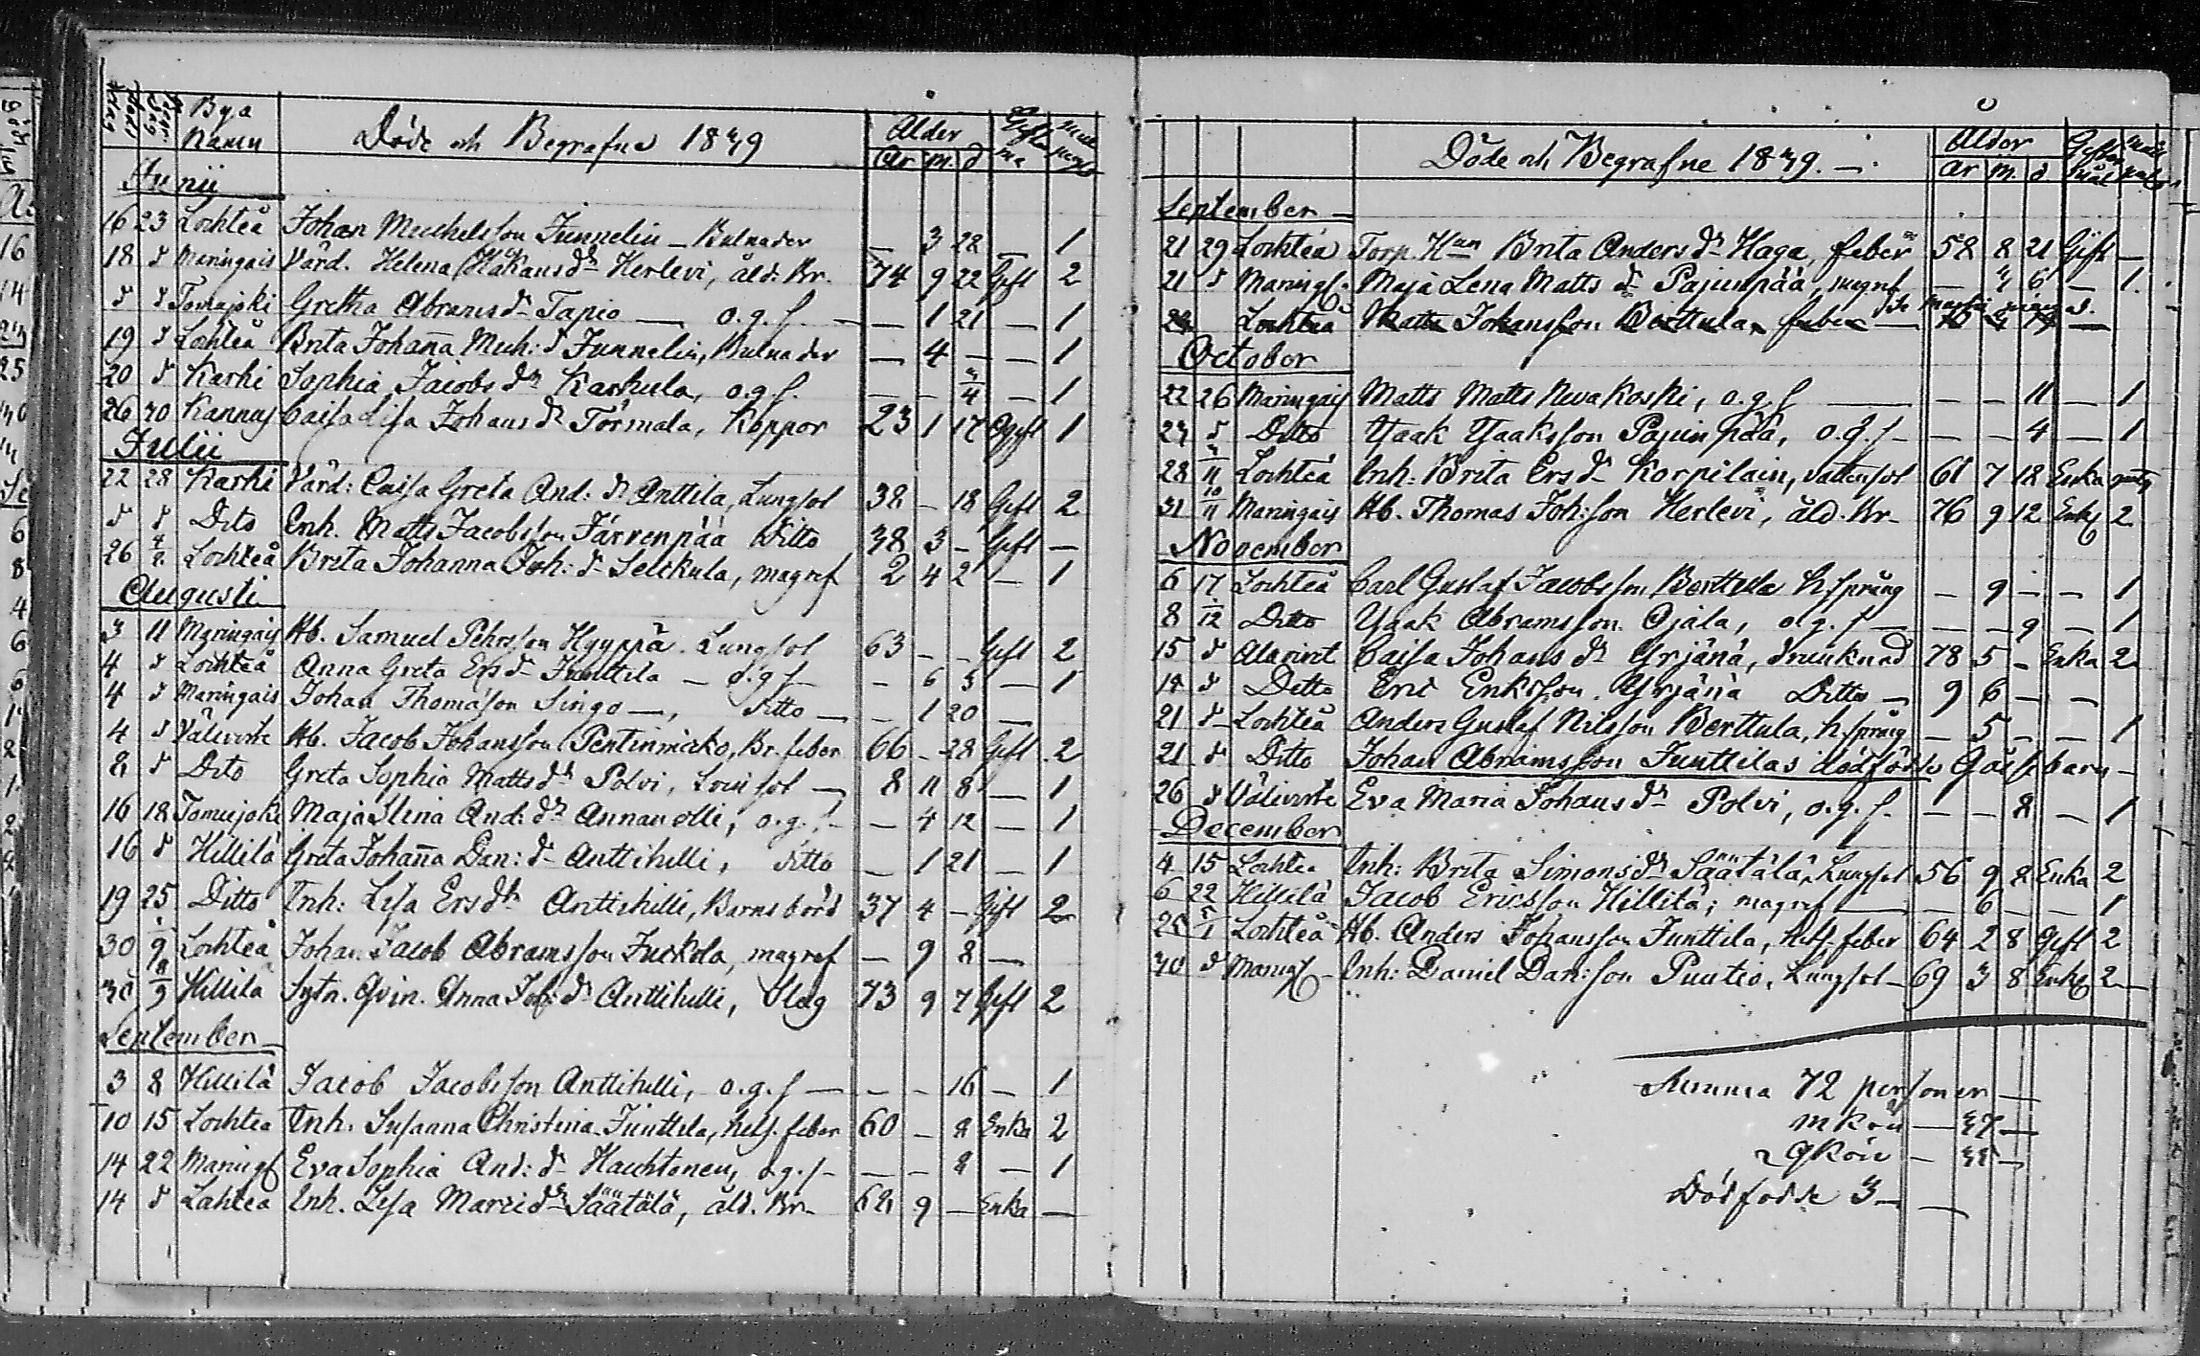 Bya
Namn
Döde och Begrafne 1839
Ålder
år m d
Junij
16 23 Lochteå Johan Michelsson Junnelin - Bulnader — 3 28 — 1
18 d Maringais Värd. Helena Håkansdr Herlevi, åld. Br. 74 9 22 Gift 2
d d Tomujoki Gretha Abramsd Tapio — o.g.f. — — 1 21 — 1
19 d Lochteå Brita Johanna Mich: d Junnelin, Bulnader — 4 — — 1
20 d Karhi Sophia Jacobs dr Karhula, o.g.f. — — 3/4 — 1
26 30 Kannus Caisa Lisa Johans dr Törmälä, Koppor 23 1 17 Ogift 1
Julii
22 28 Karhi Värd: Caisa Greta And: dr Anttila, Lungsot 38 — 18 Gift 2
d d Dito Inh. Matts Jacobsson Järvenpää Ditto 38 3 — Gift —
26 4/8 Lochteå Brita Johanna Joh: d Seikkula, magref 2 4 2 — 1
Augusti
3 11 Maringais Hb. Samuel Pehrsson Hyyppä. Lungsot 63 — — Gift 2
4 d Lochteå Anna Greta Ers d Junttila — o.g.f — 6 5 — 1
4 d Maringais Johan Thomasson Singo —, Ditto — — 1 20 —
4 d Välivirte Hb. Jacob Johansson Pentinmäko, Br. feber 66 — 28 Gift 2
8 d Dito Greta Sophia Matts dr Polvi, sot — 8 11 8 — 1
16 18 Tomujoki Maja Stina And: dr Annanolli, o.g.f. — 4 12 — 1
16 d Hillilä Greta Johanna Dan: d Anttihilli, Ditto — 1 21 — 1
19 25 Ditto Inh: Lisa Ersdr Anttihilli, Barnsbörd 37 4 — Gift 2
30 9/9 Lochteå Johan Jacob Abramsson Juckola, magref — 9 8 —
30 18/9 Hillilä Sytn. Qvin. Anna Joh: dr Anttihilli, Slag 73 9 7 Gift 2
September
3 8 Hillilä Jacob Jacobsson Anttihilli, o.g.f — — — 16 — 1
10 15 Lochtea Inh. Susanna Christina Junttila, hets. feber 60 — 8 Enka 2
14 22 Marings Eva Sophia And: d Hauhtonen, o.g.f — — — 8 — 1
14 d Lahtea Inh. Lisa Marcidr Säätälä, åld. Br. 62 9 — Enka —
Döde och Begrafne 1839.
Ålder
år m. d.
September
21 29 Lochtéa Torp. Hun Brita Anders dr Haga, feber 58 8 21 Gift —
21 d Marings. Maja Lena Matts dr Pajunpää, magref — 3 6 — 1.
Lochteå Matts Johansson Berttula, feber
October
22 26 Maringais Matts Matts Nivakoski, o.g.f — — — 11 — 1
23 d Ditto Ysaak Ysaaksson Pajunpää, o.g.f — — — 4 — 1
28 3/11 Lochteå Inh: Brita Ers d Korpilain, vattusot 61 7 18 Enka
31 10/11 Maringais Hb. Thomas Joh:son Herlevi, åld. Br. 76 9 12 Enkl 2
November
6 17 Lochteå Carl Gustaf Jacobsson Berttula h.språng — 9 — — 1
8 1/12 Ditto Ysaak Abramsson Ojala, o.g.f — — — 9 — 1
15 d Alavirt Caisa Johans dr Yrjänä, drunknad 78 5 — Enka 2
14 d Ditto Eric Ericksson. Yrjänä Ditto — 9 6 — —
21 d Lochteå Anders Gustaf Nilsson Berttula, h.språng — 5 — — 1
21 d Ditto Johan Abramsson Junttilas dödfödde Gåssebarn —
26 d Välivirte Eva Maria Johans dr Polvi, o.g.f. — — 8 — 1
December
4 15 Lochtea Inh: Brita Simons dr Säätälä, Lungsot 56 9 8 Enka 2
6 22 Hillilä Jacob Ericsson Hillilä; magref — — 6 — — 1
25 5/1 Lochteå Hb. Anders Johansson Junttila, hets. feber 64 2 8 Gift 2
30 d Maings Inh: Daniel Dan:son Puutio, Lungsot 69 3 8 Enkl 2
Summa 72 personer —
mkön — 37 —
qkön — 35 —
Dödfödde 3 —